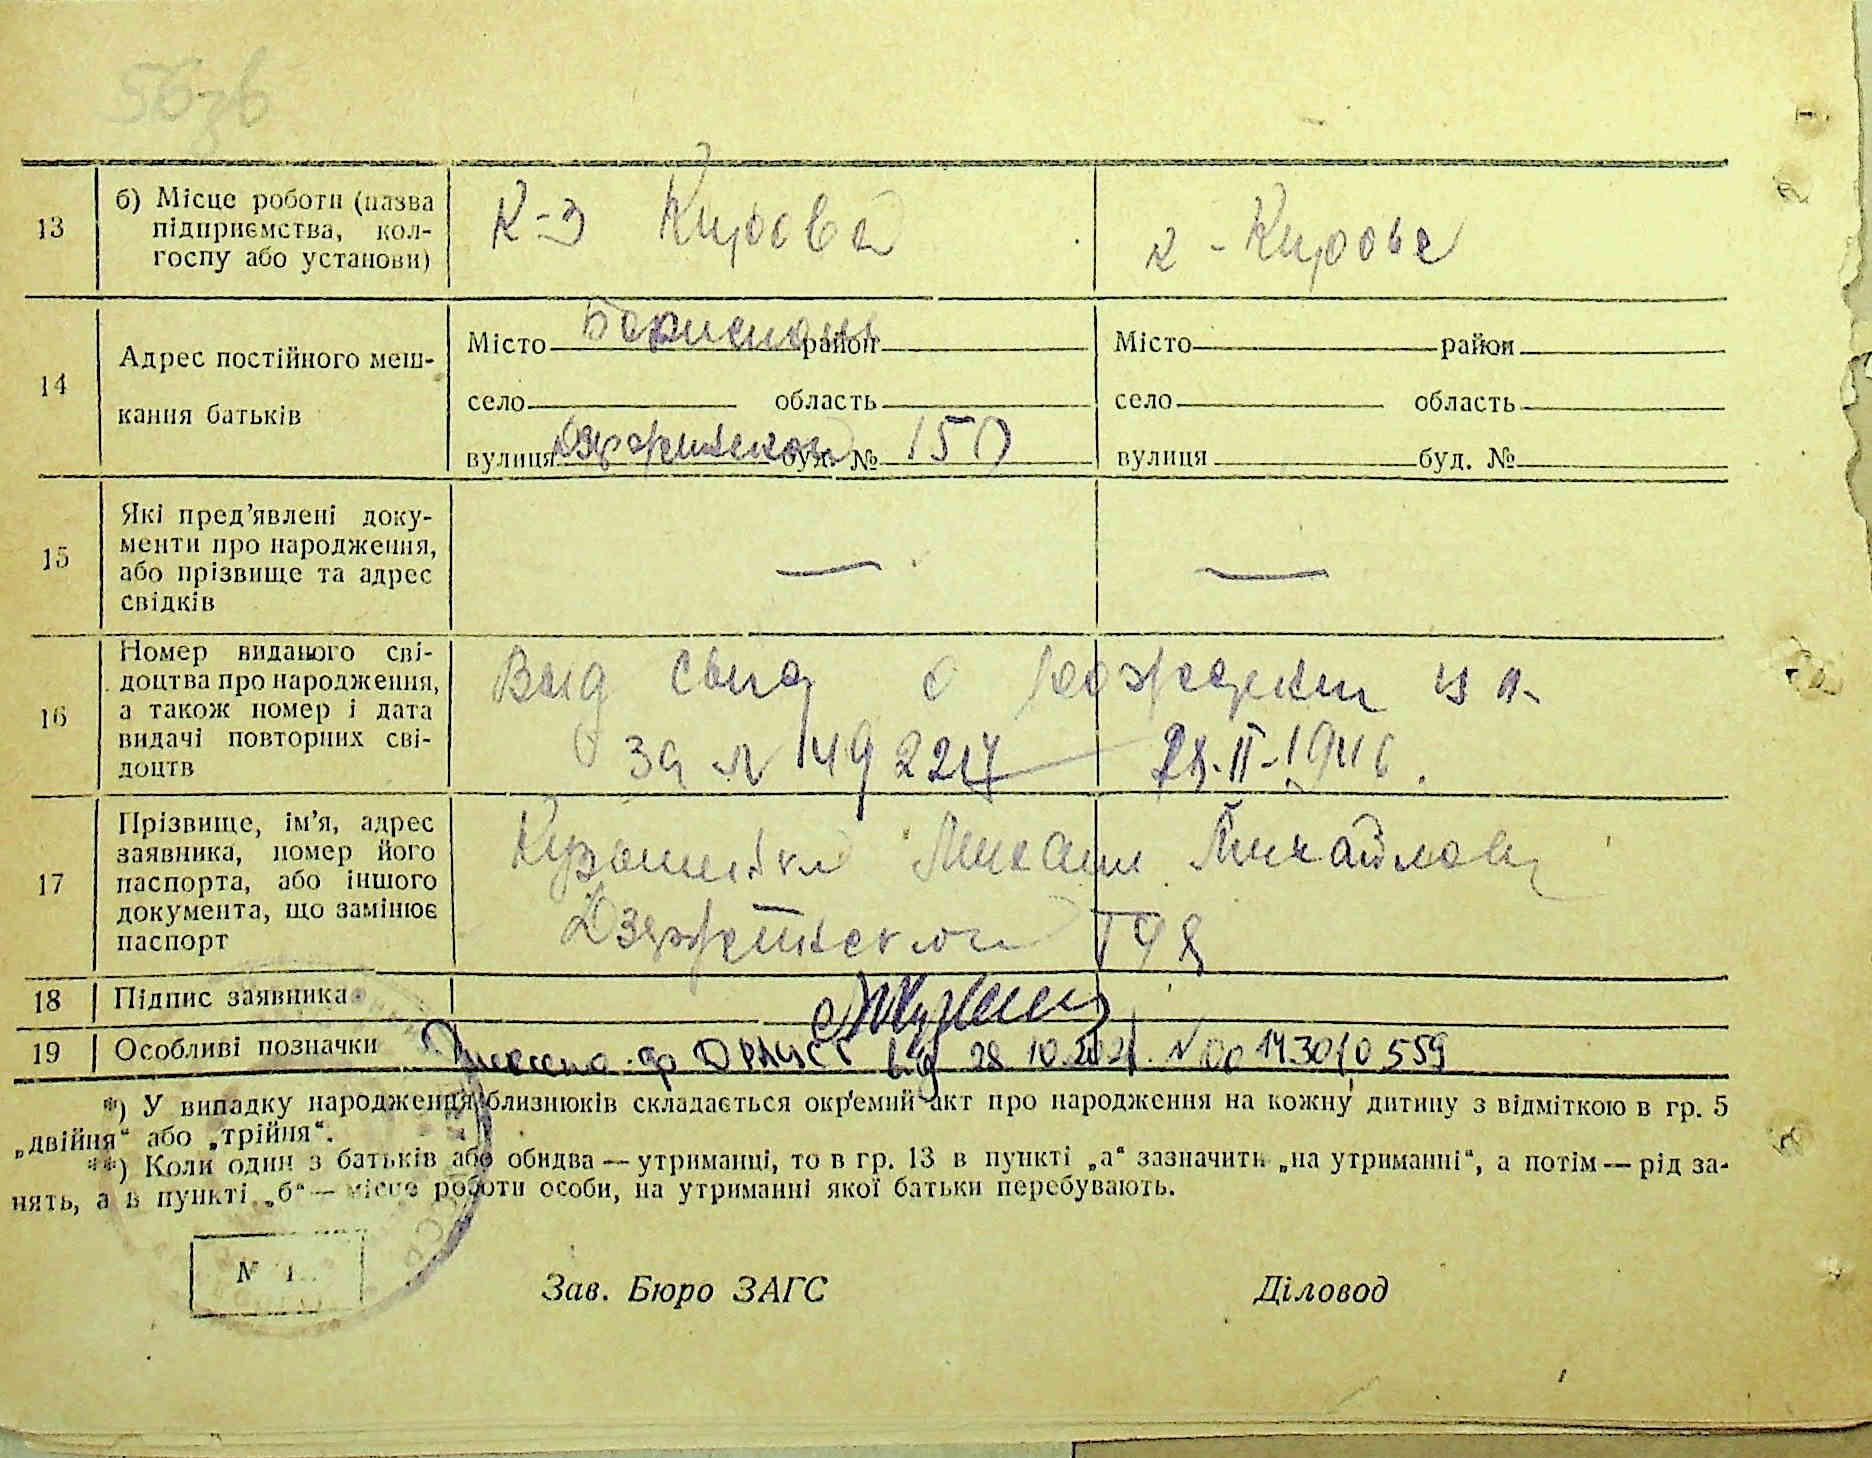 56зв
13
б) Місце роботи (назва
підприємства, кол-
госпу або установи)
К-з Кирова
к - Кирова
14
Адрес постійного меш-
кання батьків
Місто Борисполь район
село область
вулиця Дзержинского буд. № 150
Місто район
село область
вулиця буд. №
15
Які пред’явлені доку-
менти про народження,
або прізвище та адрес
свідків
—
—
16
Номер виданого сві-
доцтва про народження,
а також номер і дата
видачі повторних сві-
доцтв
Выд свид о рождении
за № 149227 28-II-1946.
17
Прізвище, ім’я, адрес
заявника, номер його
паспорта, або іншого
документа, що замінює
паспорт
Михаил Михайлович
Дзержинского
18
Підпис заявника
19
Особливі позначки
Внесено до ДРАЦСГ від 28.10.2021. № 00143010559
*) У випадку народження близнюків складається окремий акт про народження на кожну дитину з відміткою в гр. 5
„двійня“ або „трійня“.
**) Коли один з батьків або обидва — утриманці, то в гр. 13 в пункті „а“ зазначить „на утриманні“, а потім — рід за-
нять, а в пункті „б“ — місце роботи особи, на утриманні якої батьки перебувають.
Зав. Бюро ЗАГС
Діловод